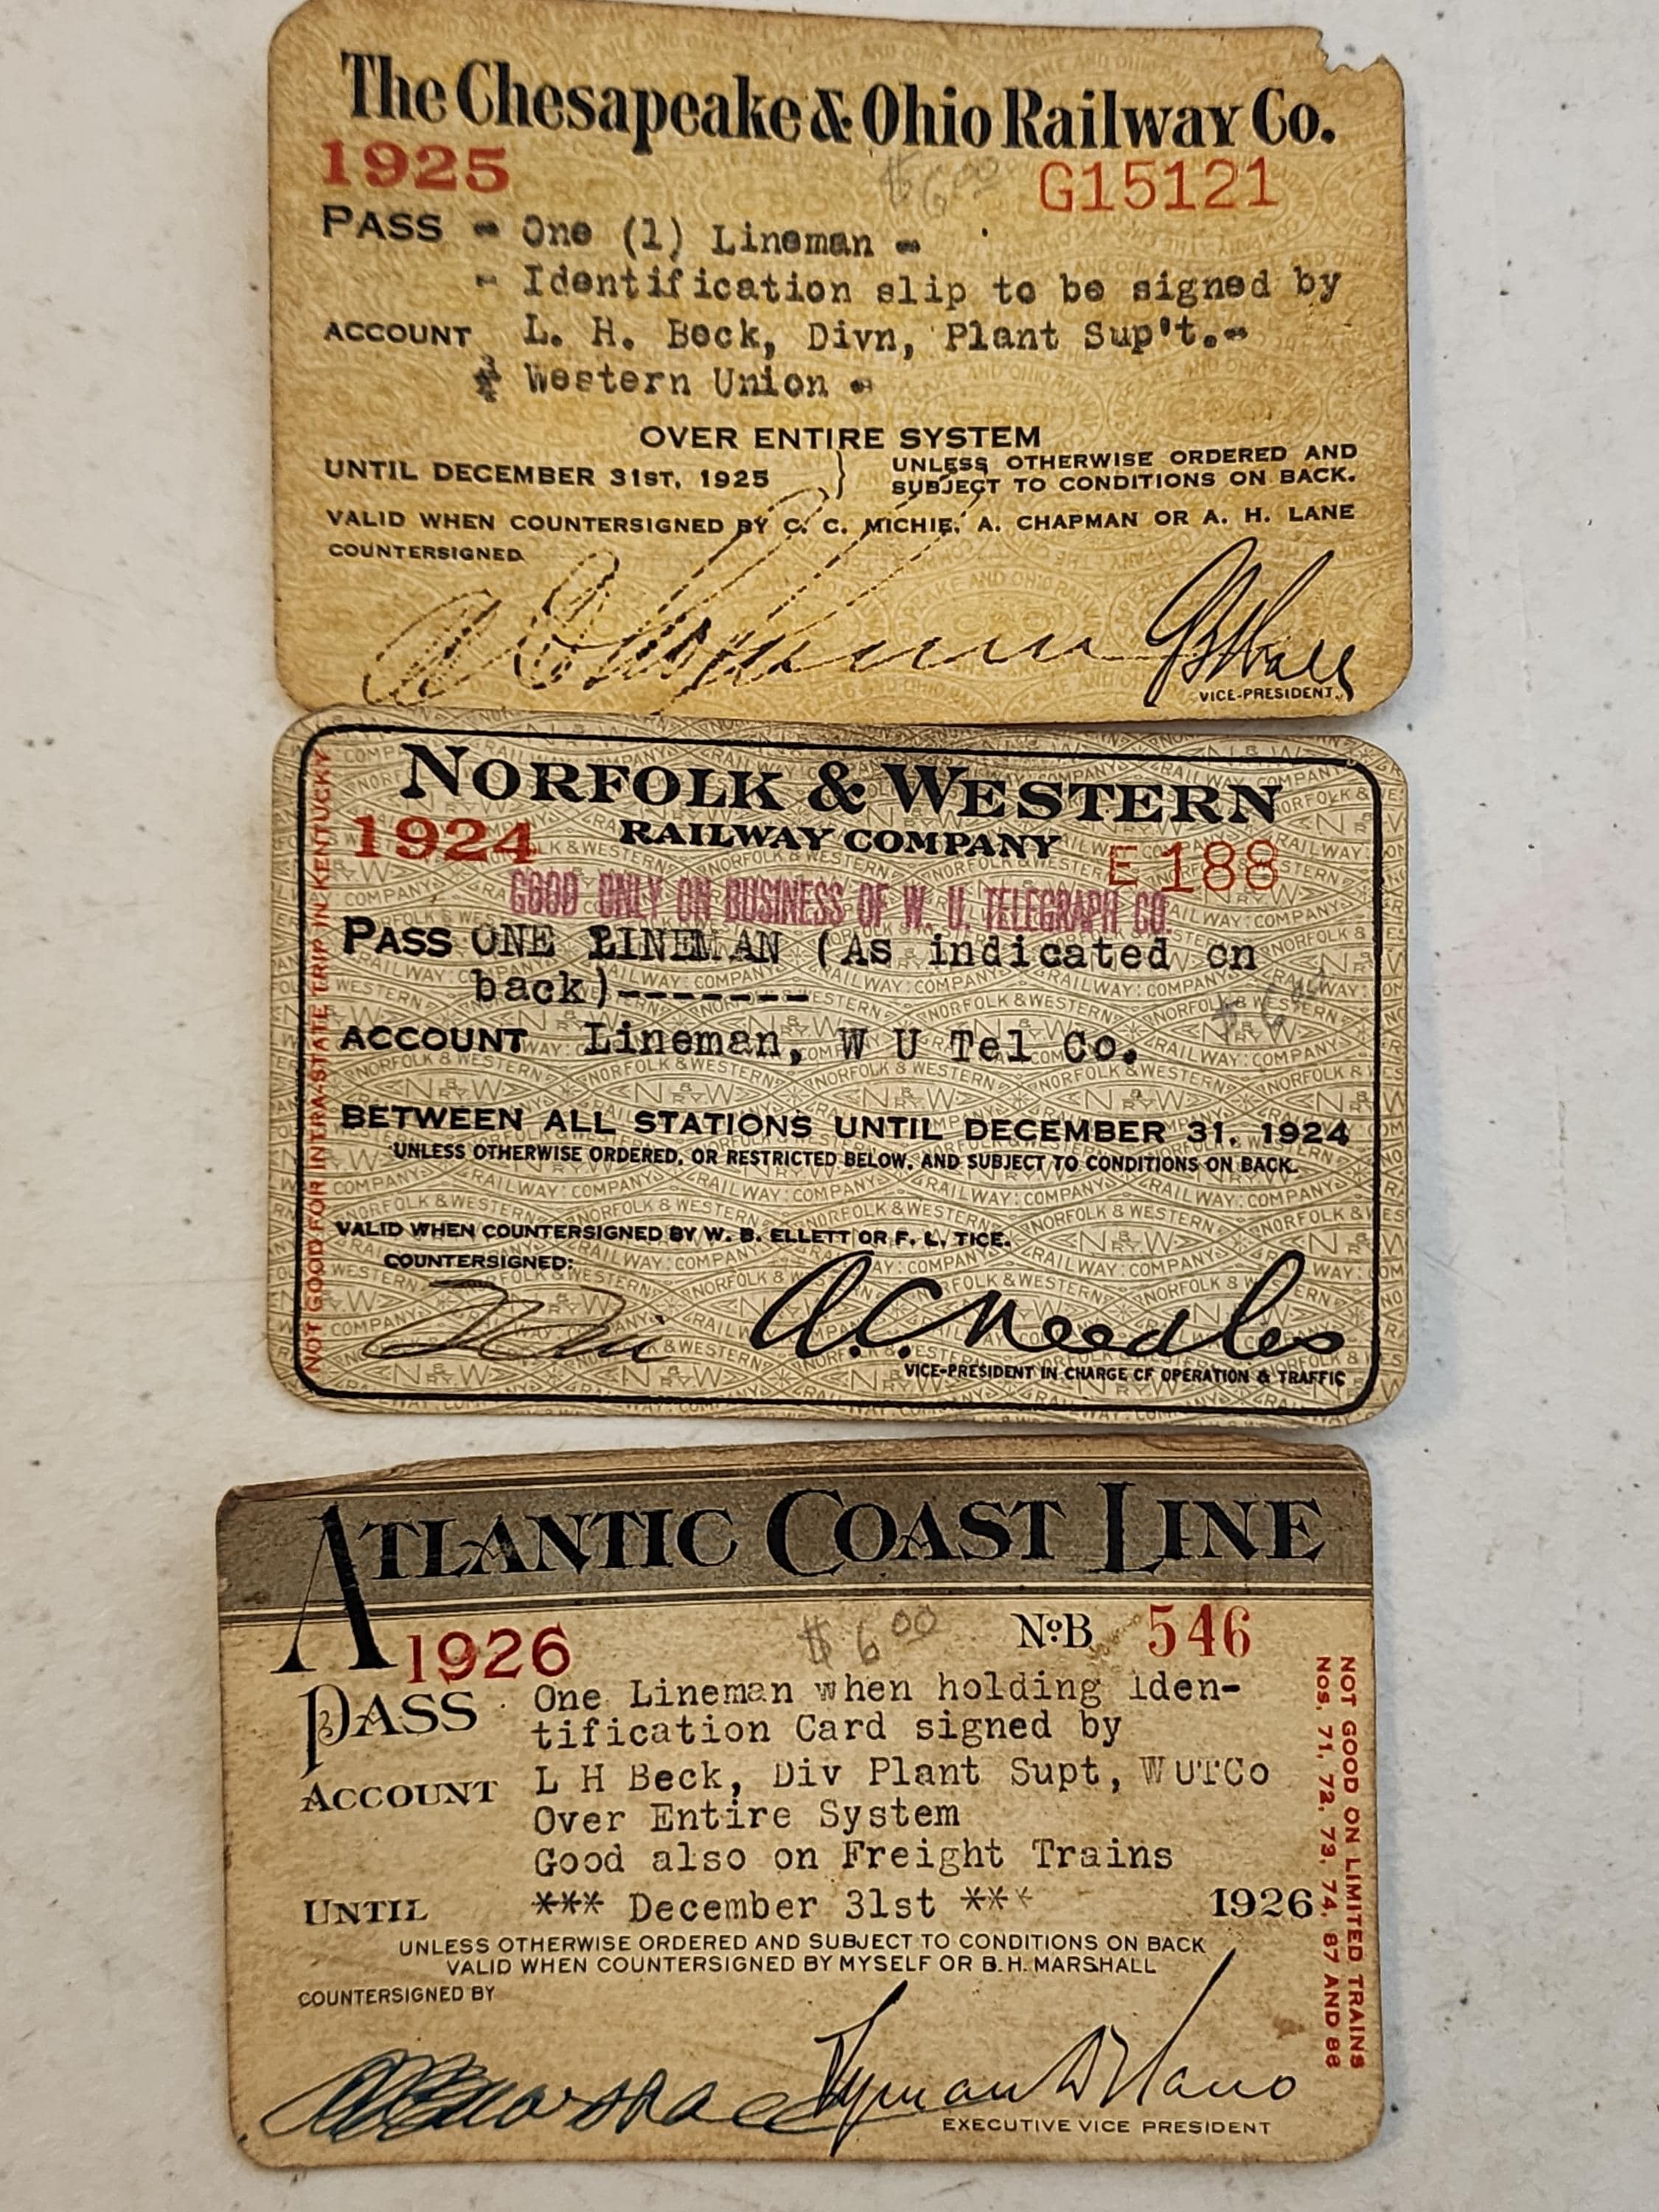 The Chesapeake & Ohio Railway Co.
1925 $6.00 G15121
PASS - One (1) Lineman -
- Identification slip to be signed by
ACCOUNT L. H. Beck, Divn, Plant Sup't.-
Western Union -
OVER ENTIRE SYSTEM
UNTIL DECEMBER 31ST, 1925 } UNLESS OTHERWISE ORDERED AND
SUBJECT TO CONDITIONS ON BACK.
VALID WHEN COUNTERSIGNED BY C. C. MICHIE, A. CHAPMAN OR A. H. LANE
COUNTERSIGNED
VICE-PRESIDENT.
NORFOLK & WESTERN
1924 RAILWAY COMPANY E 188
GOOD ONLY ON BUSINESS OF W. U. TELEGRAPH CO.
PASS ONE LINEMAN (As indicated on
back)-------
ACCOUNT Lineman, W U Tel Co.
BETWEEN ALL STATIONS UNTIL DECEMBER 31, 1924
UNLESS OTHERWISE ORDERED, OR RESTRICTED BELOW, AND SUBJECT TO CONDITIONS ON BACK.
VALID WHEN COUNTERSIGNED BY W. B. ELLETT OR F. L. TICE.
COUNTERSIGNED:
A.C. Needles
VICE-PRESIDENT IN CHARGE OF OPERATION & TRAFFIC
NOT GOOD FOR INTRA-STATE TRIP IN KENTUCKY
ATLANTIC COAST LINE
1926 $6.00 No. B 546
PASS One Lineman when holding iden-
tification Card signed by
ACCOUNT L H Beck, Div Plant Supt, WUTCo
Over Entire System
Good also on Freight Trains
UNTIL *** December 31st *** 1926
UNLESS OTHERWISE ORDERED AND SUBJECT TO CONDITIONS ON BACK
VALID WHEN COUNTERSIGNED BY MYSELF OR B. H. MARSHALL
COUNTERSIGNED BY
Lyman Delano
EXECUTIVE VICE PRESIDENT
NOT GOOD ON LIMITED TRAINS
NOS. 71, 72, 73, 74, 87 AND 88